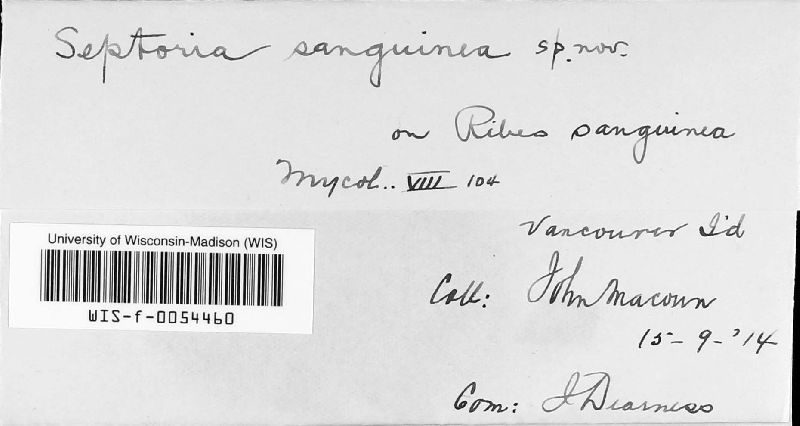 Septoria sanguinea sp. nov.
on Ribes sanguinea
Mycol.. VIII 104
Vancouver I'd
University of Wisconsin-Madison (WIS)
WIS-f-0054460
Coll: John Macoun
15-9-'14
Com: J Dearness